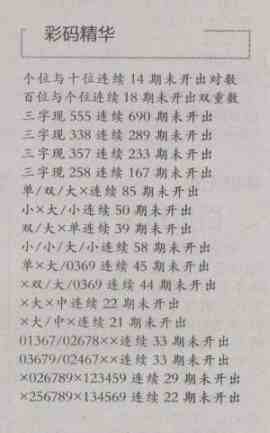 彩码精华
个位与十位连续 14 期未开出对数
百位与个位连续 18 期未开出双重数
三字现 555 连续 690 期未开出
三字现 338 连续 289 期未开出
三字现 357 连续 233 期未开出
三字现 258 连续 167 期未开出
单/双/大×连续 85 期未开出
小×大/小连续 50 期未开出
双/大×单连续 39 期未开出
小/小/大/小连续 58 期未开出
单×大/0369 连续 45 期未开出
×双/大/0369 连续 44 期未开出
×大×中连续 22 期未开出
×大/中×连续 21 期未开出
01367/02678××连续 33 期未开出
03679/02467××连续 33 期未开出
×026789×123459 连续 29 期未开出
×256789×134569 连续 22 期未开出